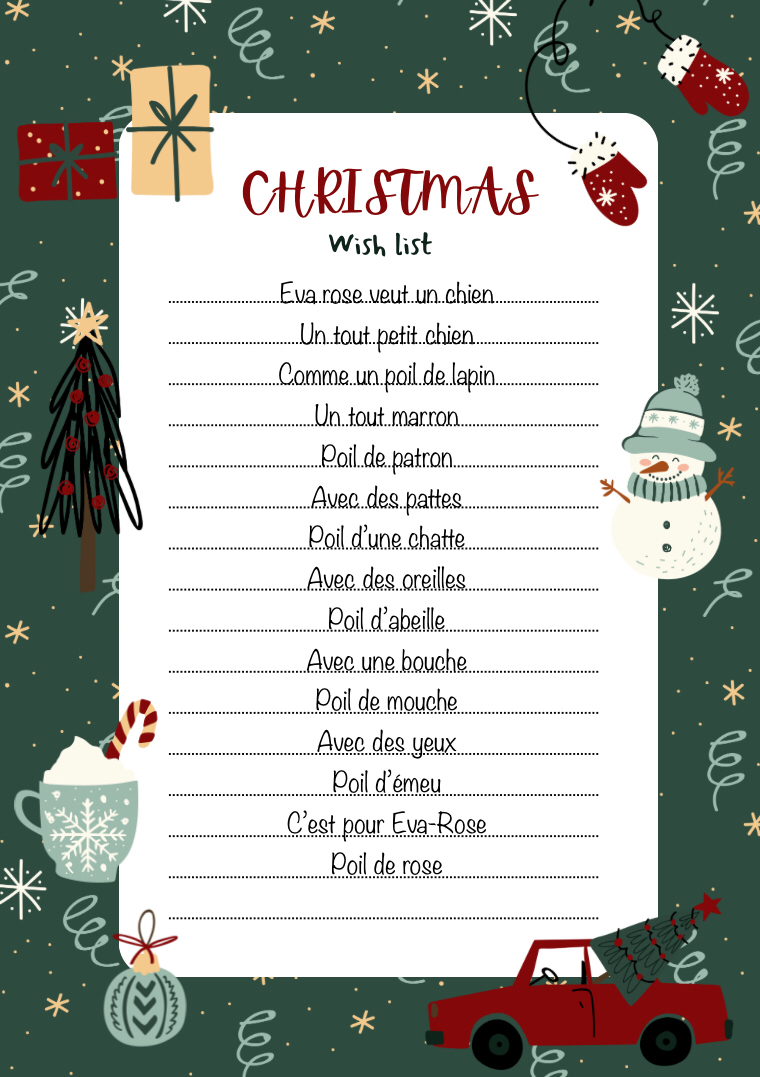 CHRISTMAS
Wish list
Eva rose veut un chien
Un tout petit chien
Comme un poil de lapin
Un tout marron
Poil de patron
Avec des pattes
Poil d'une chatte
Avec des oreilles
Poil d'abeille
Avec une bouche
Poil de mouche
Avec des yeux
Poil d'émeu
C'est pour Eva-Rose
Poil de rose